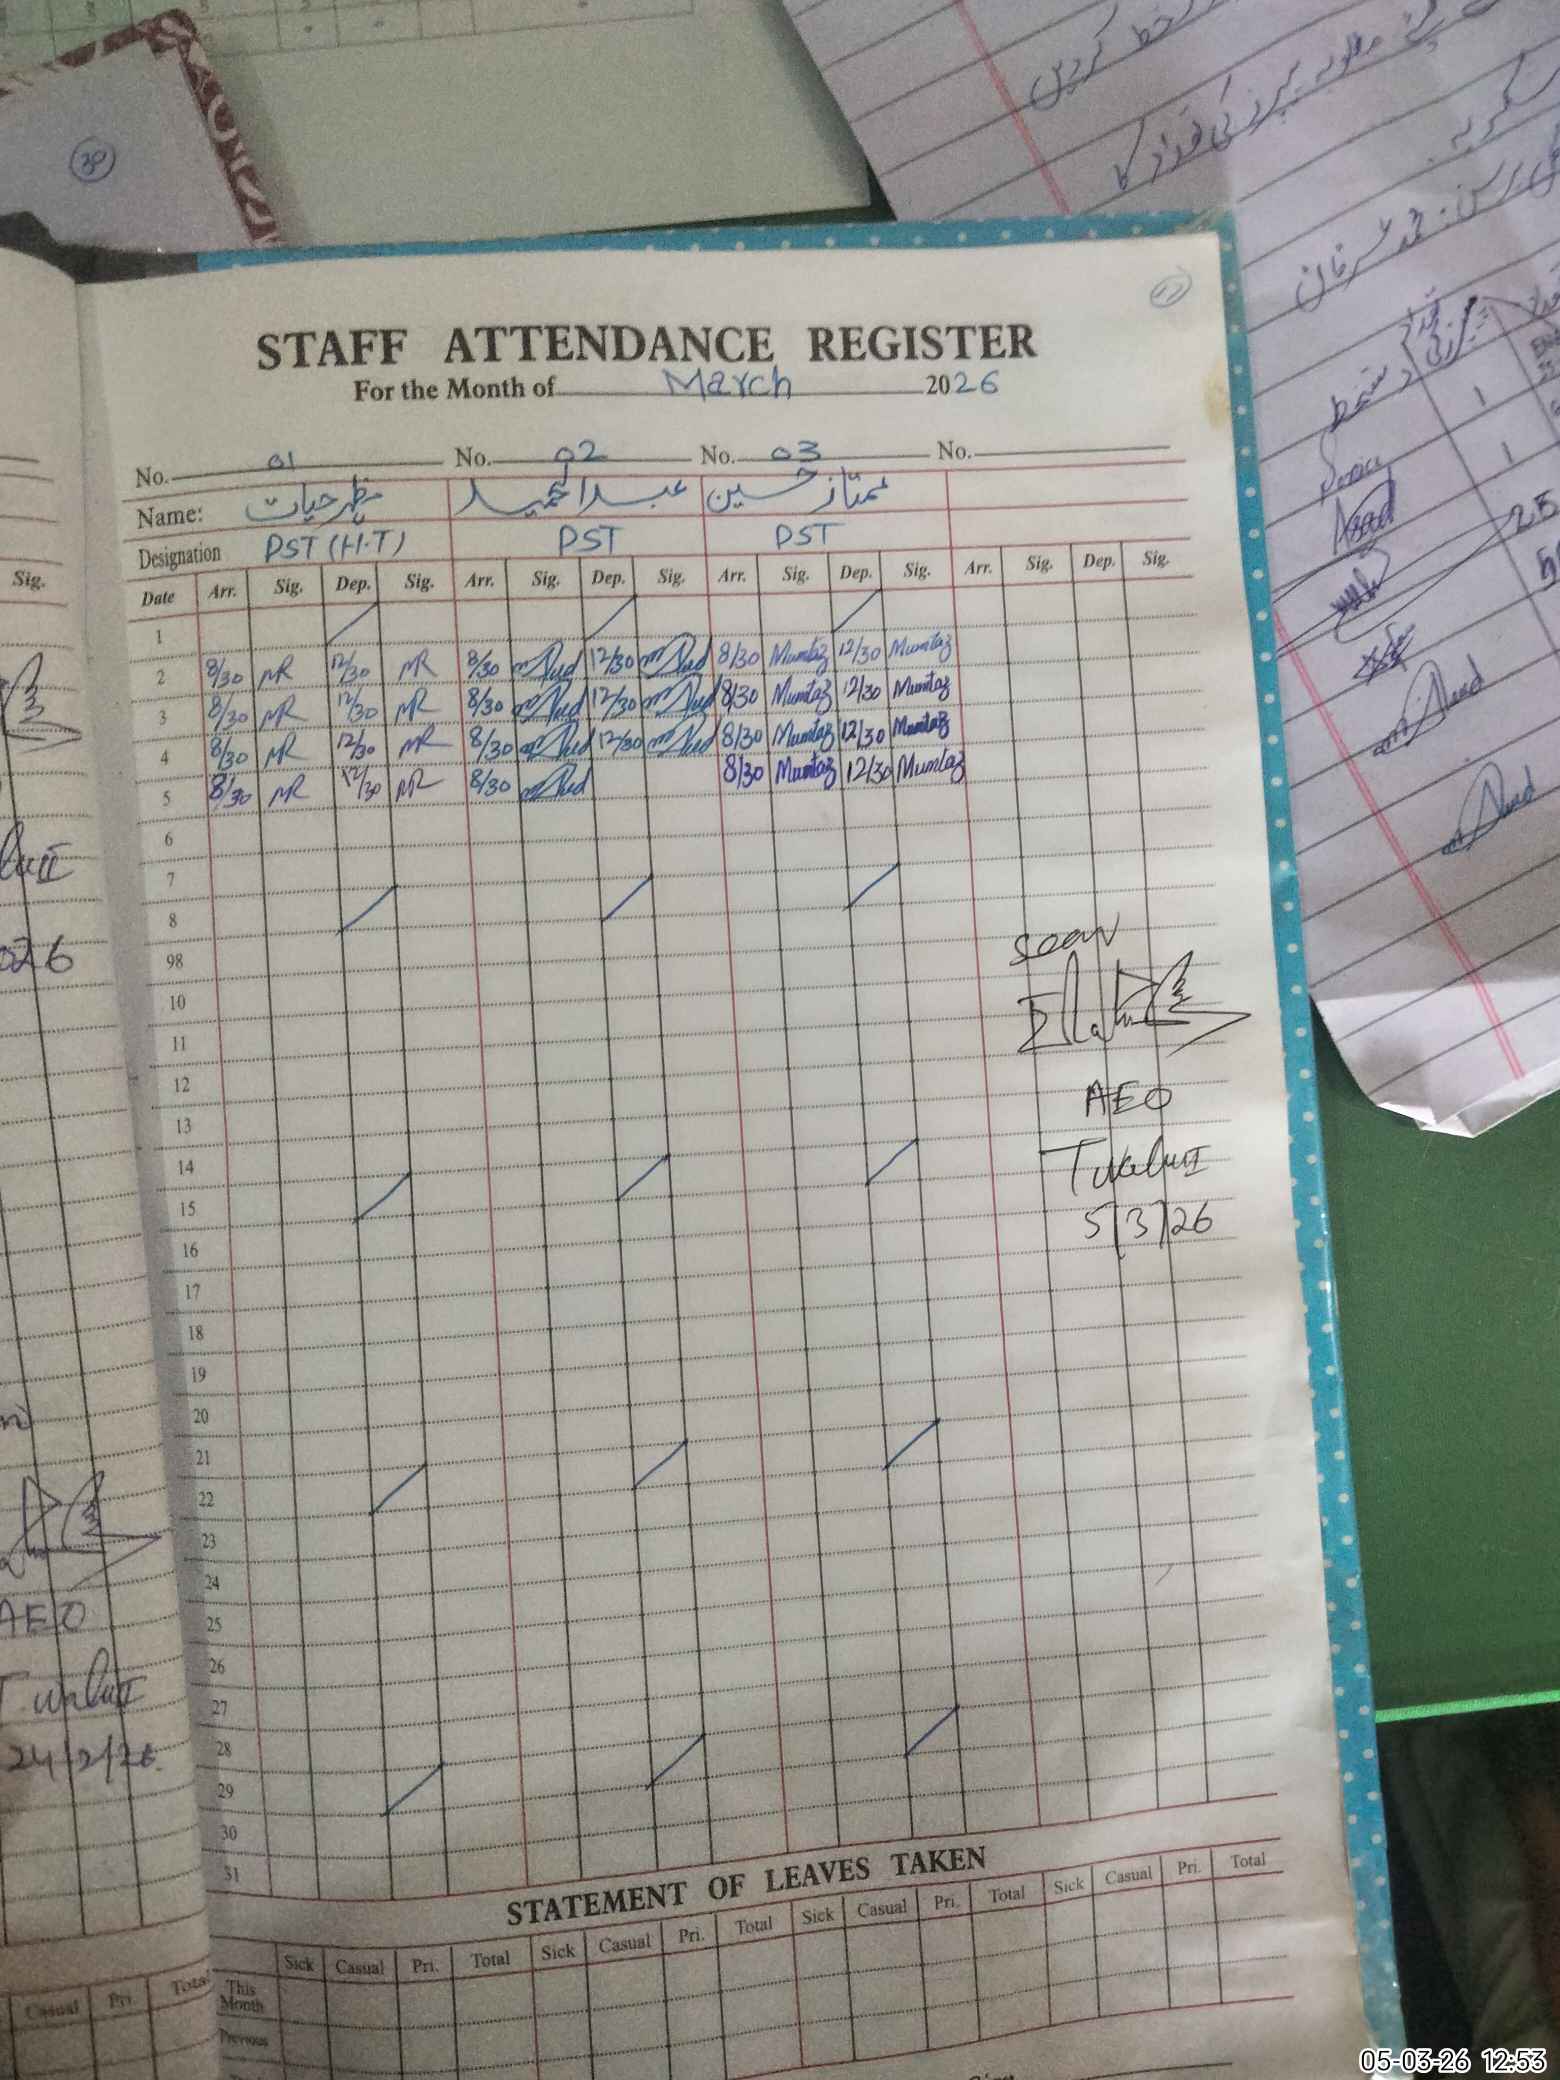 STAFF ATTENDANCE REGISTER
For the Month of March 2026
No. 01 No. 02 No. 03 No.
Name: مظہر حیات عبدالحمید ممتاز حسین
Designation PST (H.T) PST PST
Date Arr. Sig. Dep. Sig. Arr. Sig. Dep. Sig. Arr. Sig. Dep. Sig. Arr. Sig. Dep. Sig.
1
2 8/30 MR 12/30 MR 8/30 12/30 8/30 Mumtaz 12/30 Mumtaz
3 8/30 MR 12/30 MR 8/30 12/30 8/30 Mumtaz 12/30 Mumtaz
4 8/30 MR 12/30 MR 8/30 12/30 8/30 Mumtaz 12/30 Mumtaz
5 8/30 MR 12/30 MR 8/30 8/30 Mumtaz 12/30 Mumtaz
6
7
8
98
10
11
12
13
14
15
16
17
18
19
20
21
22
23
24
25
26
27
28
29
30
31
Seen
AEO
5/3/26
STATEMENT OF LEAVES TAKEN
Sick Casual Pri. Total Sick Casual Pri. Total Sick Casual Pri. Total Sick Casual Pri. Total
This Month
Previous
Sig.
026
AEO
24/2/26
Casual Pri. Total
30
خط کریں
کی تعداد کا
دستخط
1
1
25
05-03-26 12:53